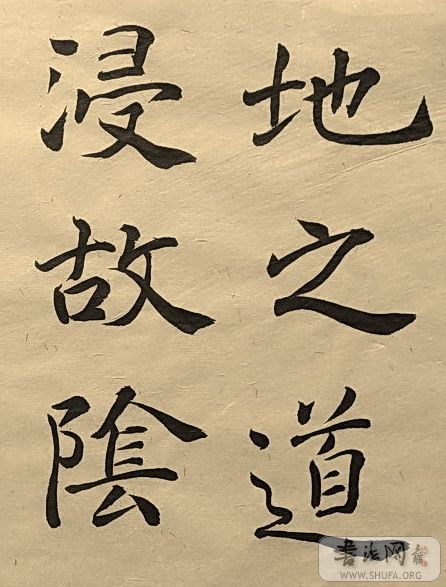 地之道
浸故陰
書法网
WWW.SHUFA.ORG